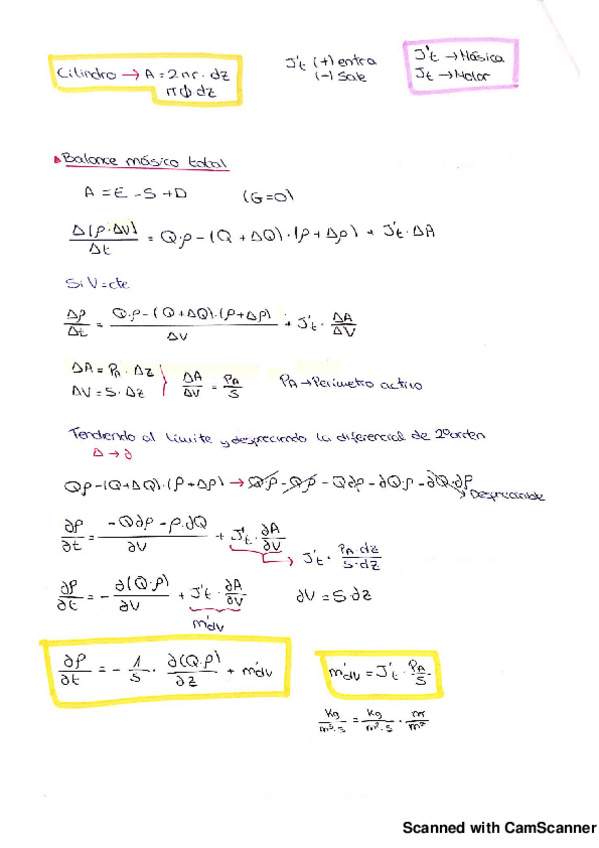 Cilindro → A = 2πr · dz
π Φ dz
J't (+) entra
(-) Sale
J't → Másica
Jt → Molar
Balance másico total
A = E - S + D (G=0)
Δ(ρ·ΔV)/Δt = Q·ρ - (Q + ΔQ)·(ρ + Δρ) + J't · ΔA
Si V=cte
Δρ/Δt = (Q·ρ - (Q+ΔQ)·(ρ+Δρ))/ΔV + J't · ΔA/ΔV
ΔA = PA · Δz
ΔV = S · Δz
ΔA/ΔV = PA/S
PA → Perímetro activo
Tendiendo al límite y despreciando la diferencial de 2º orden
Δ → ∂
Qρ - (Q+ΔQ)·(ρ+Δρ) → Qρ - Qρ - Q∂ρ - ∂Q·ρ - ∂Q·∂ρ
Despreciable
∂ρ/∂t = (-Q∂ρ - ρ·∂Q)/∂V + J't · ∂A/∂V
→ J't · PA·dz/S·dz
∂ρ/∂t = - ∂(Q·ρ)/∂V + J't · ∂A/∂V
∂V = S·∂z
m'dv
∂ρ/∂t = - 1/S · ∂(Q·ρ)/∂z + m'dv
m'dv = J't · PA/S
kg/m³·s = kg/m²·s · m/m²
Scanned with CamScanner